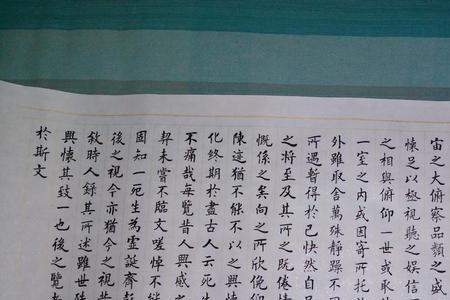 宙之大俯察品類之盛
懷足以極視聽之娛信
之相與俯仰一世或取
一室之内或因寄所托
外雖取舍萬殊静躁不
所遇暫得於己快然自
之將至及其所之既倦
慨係之矣向之所欣俛仰
陳迹猶不能不以之興懷
化終期於盡古人云死生
不痛哉每覽昔人興感之
契未嘗不臨文嗟悼不能
固知一死生為虛誕齊
後之視今亦猶今之視
敘時人錄其所述雖世殊
興懷其致一也後之覽者
於斯文